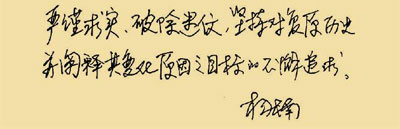 严谨求实、破除迷信，坚持对复原历史
并阐释其变化原因之目标的不懈追求。